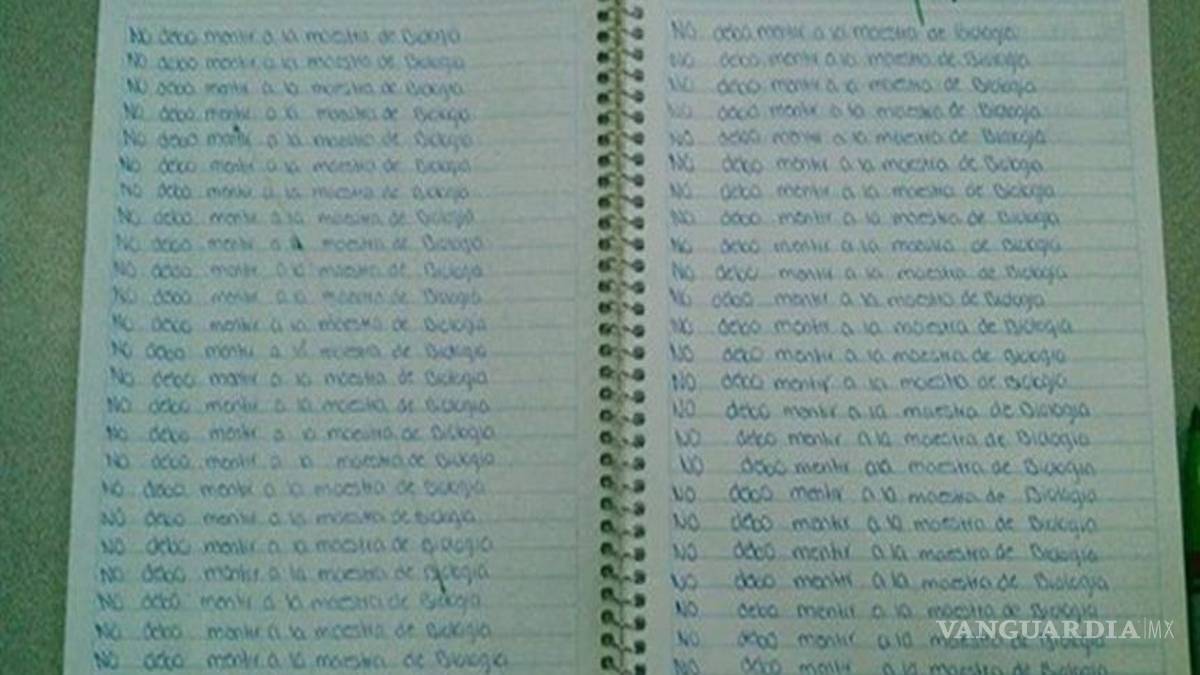 No debo mentir a la maestra de Biologia
No debo mentir a la maestra de Biologia
No debo mentir a la maestra de Biologia
No debo mentir a la maestra de Biologia
No debo mentir a la maestra de Biologia
No debo mentir a la maestra de Biologia
No debo mentir a la maestra de Biologia
No debo mentir a la maestra de Biologia
No debo mentir a la maestra de Biologia
No debo mentir a la maestra de Biologia
No debo mentir a la maestra de Biologia
No debo mentir a la maestra de Biologia
No debo mentir a la maestra de Biologia
No debo mentir a la maestra de Biologia
No debo mentir a la maestra de Biologia
No debo mentir a la maestra de Biologia
No debo mentir a la maestra de Biologia
No debo mentir a la maestra de Biologia
No debo mentir a la maestra de Biologia
No debo mentir a la maestra de Biologia
No debo mentir a la maestra de Biologia
No debo mentir a la maestra de Biologia
No debo mentir a la maestra de Biologia
No debo mentir a la maestra de Biologia
No debo mentir a la maestra de Biologia
No debo mentir a la maestra de Biologia
No debo mentir a la maestra de Biologia
No debo mentir a la maestra de Biologia
No debo mentir a la maestra de Biologia
No debo mentir a la maestra de Biologia
No debo mentir a la maestra de Biologia
No debo mentir a la maestra de Biologia
No debo mentir a la maestra de Biologia
No debo mentir a la maestra de Biologia
No debo mentir a la maestra de Biologia
No debo mentir a la maestra de Biologia
No debo mentir a la maestra de Biologia
No debo mentir a la maestra de Biologia
No debo mentir a la maestra de Biologia
No debo mentir a la maestra de Biologia
No debo mentir a la maestra de Biologia
No debo mentir a la maestra de Biologia
No debo mentir a la maestra de Biologia
No debo mentir a la maestra de Biologia
No debo mentir a la maestra de Biologia
No debo mentir a la maestra de Biologia
No debo mentir a la maestra de Biologia
No debo mentir a la maestra de Biologia
VANGUARDIA|MX